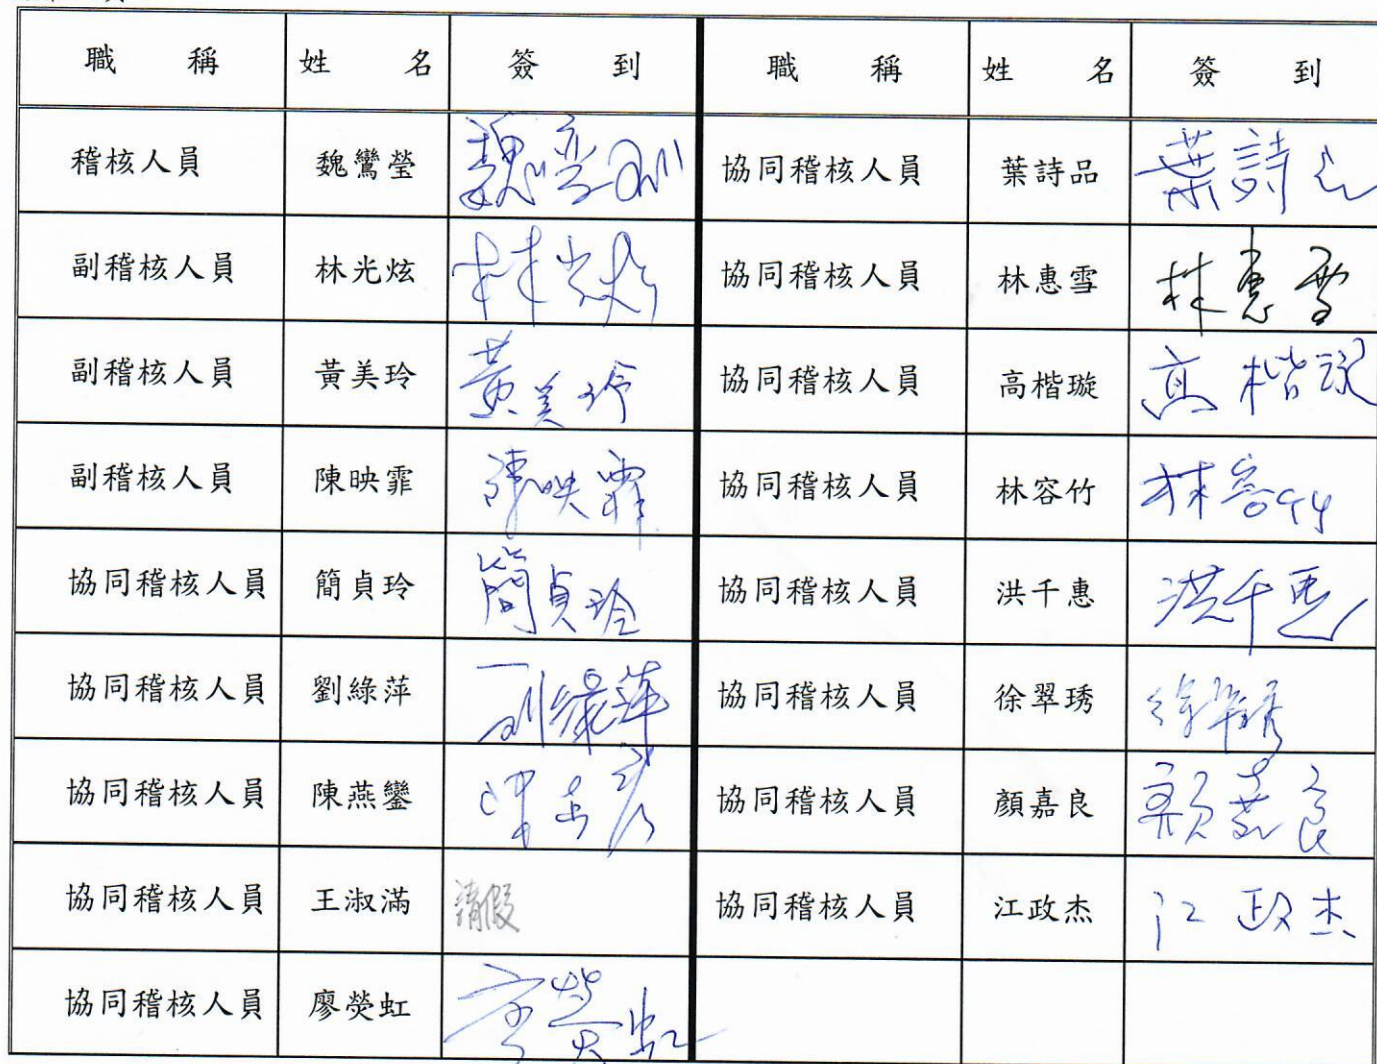 職稱 姓名 簽到 職稱 姓名 簽到
稽核人員 魏鸞瑩 協同稽核人員 葉詩品 葉詩品
副稽核人員 林光炫 林光炫 協同稽核人員 林惠雪 林惠雪
副稽核人員 黃美玲 黃美玲 協同稽核人員 高楷璇 高楷璇
副稽核人員 陳映霏 陳映霏 協同稽核人員 林容竹 林容竹
協同稽核人員 簡貞玲 簡貞玲 協同稽核人員 洪千惠 洪千惠
協同稽核人員 劉綠萍 劉綠萍 協同稽核人員 徐翠琇 徐翠琇
協同稽核人員 陳燕鑾 協同稽核人員 顏嘉良 顏嘉良
協同稽核人員 王淑滿 請假 協同稽核人員 江政杰 江政杰
協同稽核人員 廖熒虹 廖熒虹